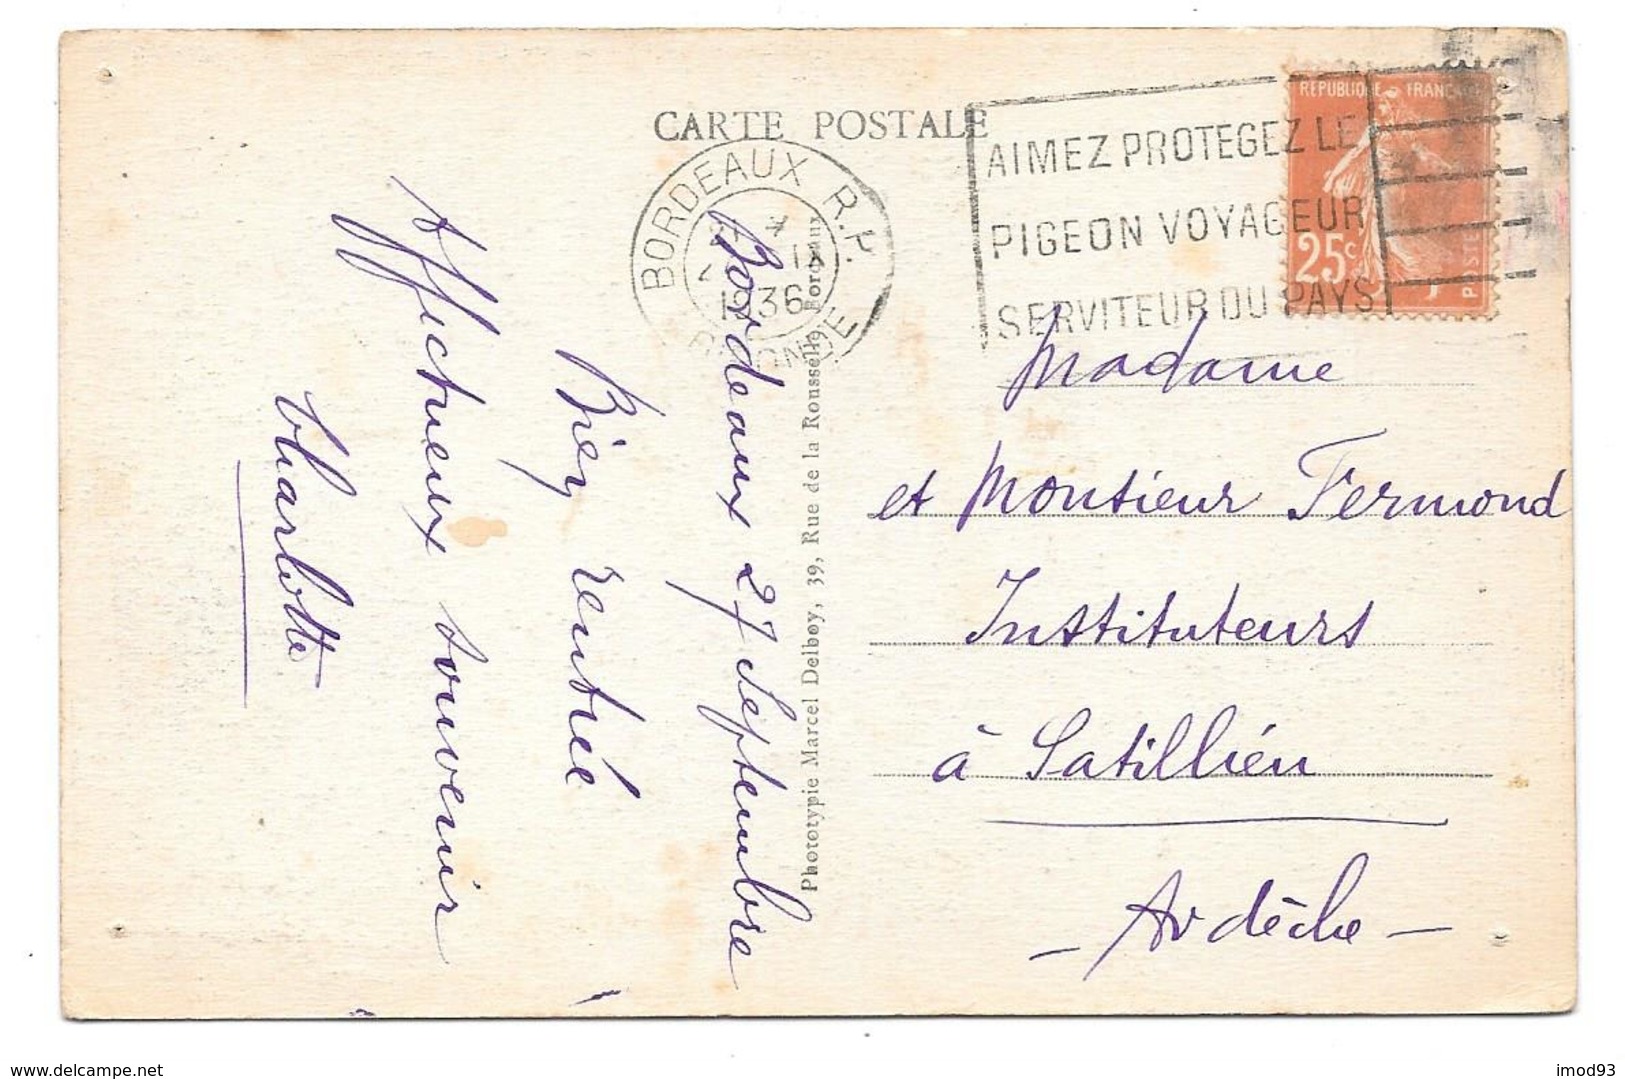 CARTE POSTALE
BORDEAUX R.P.
IX
1936
GIRONDE
AIMEZ PROTEGEZ LE
PIGEON VOYAGEUR
SERVITEUR DU PAYS
REPUBLIQUE FRANCAISE
25c
POSTE
Bordeaux 27 Septembre
Bien rentrée
Affectueux souvenir
Charlotte
Phototypie Marcel Delboy, 39, Rue de la Rousselle, Bordeaux
Madame
et Monsieur Fermond
Instituteurs
à Satillieu
- Ardèche -
www.delcampe.net
imod93